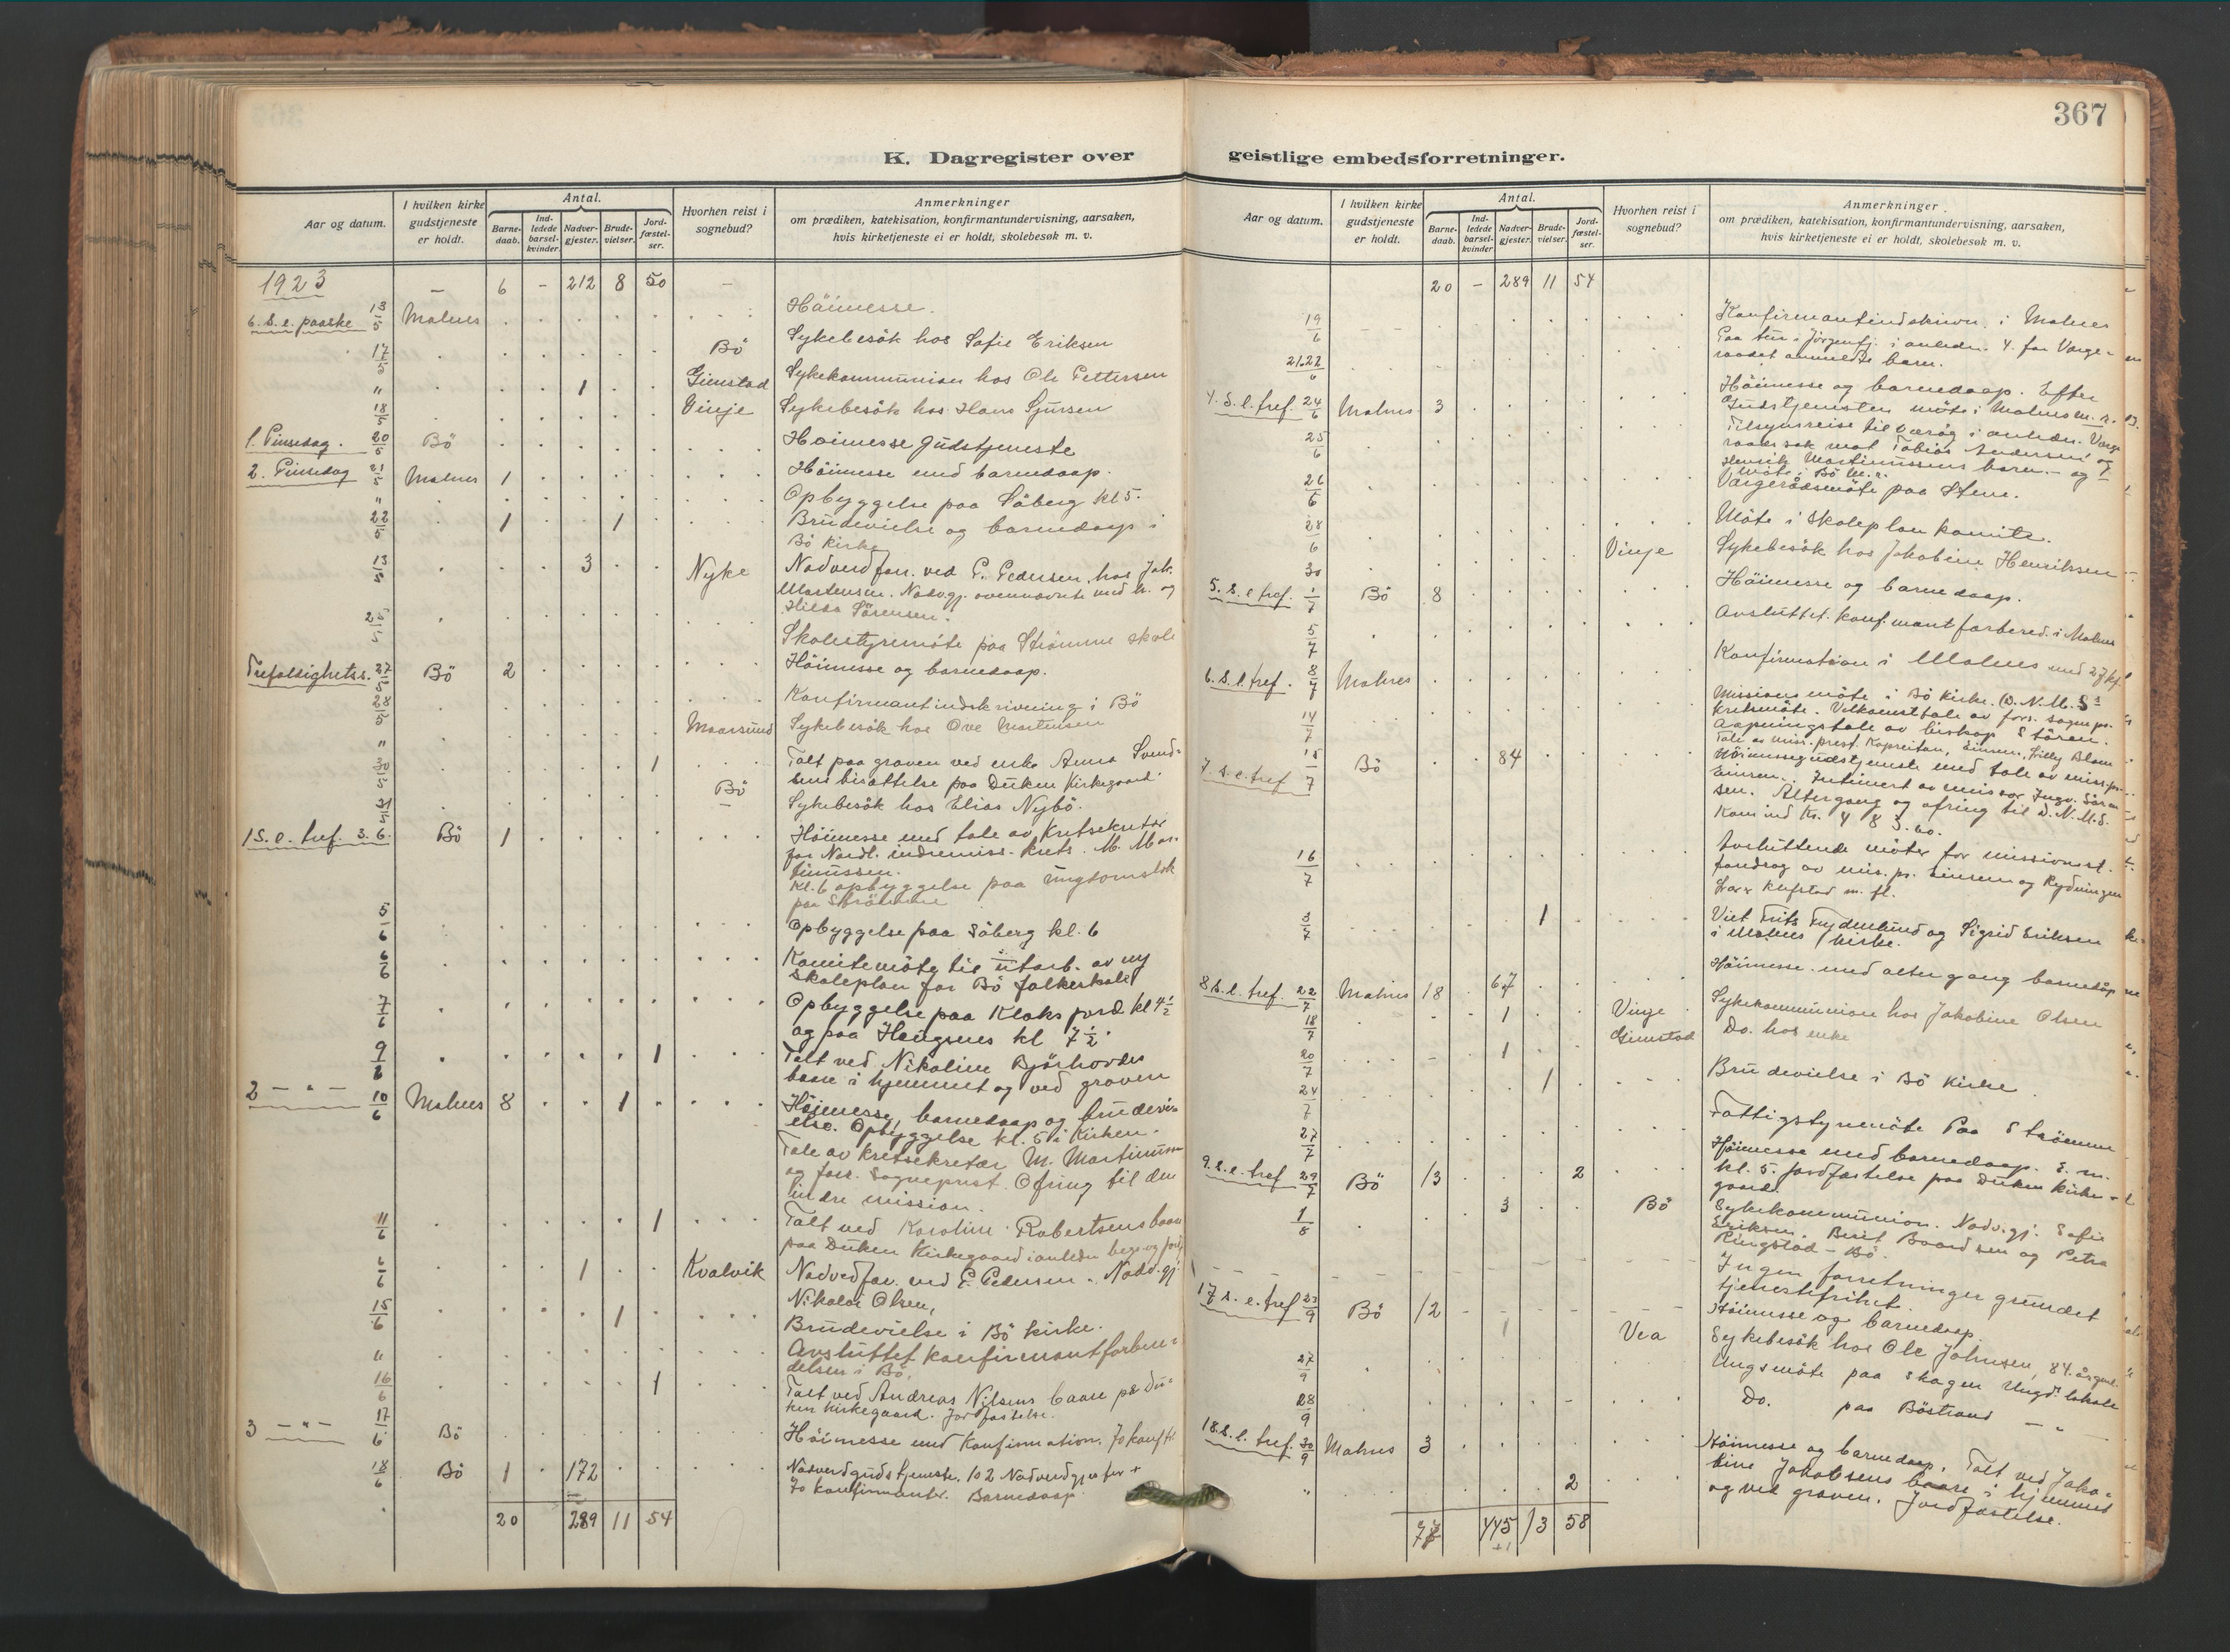 367
K. Dagregister over
Aar og datum.
I hvilken kirke gudstjeneste er holdt.
Antal.
Barne-daab.
Ind-ledede barsel-kvinder
Nadver-gjester.
Brude-vielser.
Jord-fæstel-ser.
Hvorhen reist i sognebud?
Anmerkninger
om prædiken, katekisation, konfirmantundervisning, aarsaken,
hvis kirketjeneste ei er holdt, skolebesøk m. v.
1923 — 6 - 212 8 50 -
6. S. e. paaske 13/5 Malnes Höimesse.
17/5 Bö Sykebesök hos Sofie Eriksen
" 1 Gimstad Sykekommunion hos Ole Pettersen
18/5 Vinje Sykebesök hos Hans Sjursen
1. Pinsedag. 20/5 Bö Höimesse gudstjeneste
2. Pinsedag 21/5 Malnes 1 Höimesse med barnedaap.
" Opbyggelse paa Söberg kl 5.
22/5 1 1 Brudevielse og barnedaap i
Bö kirke
3 Nyke Nadverdforr. ved P. Pedersen, hos Joh.
Martensen. Nadvgj. ovennævnte med h. og
Hilda Sörensen.
Skolestyremöte paa Strömme skole
Trefoldighetss. 27/5 Bö 2 Höimesse og barnedaap.
28/5 Konfirmantindskrivning i Bö
" Maarsund Sykebesök hos Ove Martensen
30/5 1 Talt paa graven ved enke Anna Svend=
sens bisættelse paa Duken Kirkegaard.
31/5 Bö Sykebesök hos Elias Nybö.
1 S. e. tref. 3.6. Bö 1 Höimesse med tale av Kretsekretær
for Nordl. indremiss. krets. M. Mar-
tinussen.
Kl. 6 opbyggelse paa ungdomslok
paa Strömme
5/6 Opbyggelse paa Söberg kl. 6
6/6 Komitemöte til utarb. av ny
skoleplan for Bö folkeskole
7/6 Opbyggelse paa Klaksjord kl 4 1/2
og paa Haugsnes kl 7 1/2.
9/6 1 Talt ved Nikoline Björhovdes
baare i hjemmet og ved graven
2 — " — 10/6 Malnes 8 1 Höimesse, barnedaap og brudevi-
else. Opbyggelse kl. 5 i Kirken.
Tale av kretsekretær M. Martinussen
og forr. Sogneprest. Ofring til den
indre mission.
11/6 1 Talt ved Karoline Robertsens baare
paa Duken Kirkegaard i anledn begr. og jordf
6/6 1 Kvalvik Nadvedfor. ved P. Pedersen. Nadv.gj.
Nikolai Olsen,
15/6 1 Brudevielse i Bö kirke.
" Avsluttet konfirmantforbere=
delsen i Bö.
16/6 1 Talt ved Andreas Nilsens baare på Du=
ken kirkegaard. Jordfæstelse.
3 — " — 17/6 Bö Höimesse med Konfirmation. 70 konft.
18/6 Bö 1 172 Nadverdgudstjeneste. 102 Nadverdgjester +
70 konfirmanter. Barnedaap.
20 289 11 54
geistlige embedsforretninger.
Aar og datum.
I hvilken kirke gudstjeneste er holdt.
Antal.
Barne-daab.
Ind-ledede barsel-kvinder
Nadver-gjester.
Brude-vielser.
Jord-fæstel-ser.
Hvorhen reist i sognebud?
Anmerkninger
om prædiken, katekisation, konfirmantundervisning, aarsaken,
hvis kirketjeneste ei er holdt, skolebesøk m. v.
20 - 289 11 54
19/6 Konfirmantindskrivn. i Malnes
21.22/6 Paa tur i Jörgenfj. i anledn. 4. for Værge-
raadet anmeldte barn.
4. S. e. tref. 24/6 Malnes 3 Höimesse og barnedaap. Efter
Gudstjenesten möte i Malnes m. r.
25/6 Tilsynsreise til i anledn. Værge
raads sak mot Tobias Andersen og
Henrik Martinussens barn - og
möte i Bö M. r.
26/6 Værgerådsmöte paa Steine.
28/6 Möte i skoleplan komite.
30 Vinje Sykebesök hos Jakobine Henriksen
5. S. e. tref. 1/7 Bö 8 Höimesse og barnedaap.
5/7 Avsluttet konf.mant forbered. i Malnes
6. S. e. tref. 8/7 Malnes Konfirmation i Malnes med 27 kf.
14/7 Missionsmöte i Bö kirke. (D. N. M. S.s
kretsmöte. Velkomsttale av forr. sognepr.
Aapningstale av biskop Stören.
Tale av miss. prest Einrem, Lilly Blom
7. s. e. tref 15/7 Bö 84 Höimessegudstjeneste med tale av miss.pr.
Einrem. Intimert av missær Ingv. Sören
sen. Altergang og ofring til D. N. M. S.
Kom ind Kr. 483.60.
16/7 Avsluttende möter for missionsst.
foredrag av mis. pr. Einrem og Rydningen
Lars m. fl.
3/7 1 Viet Frits Frydenlund og Sigrid Eriksen
i Malnes kirke.
8 S. e. tref. 22/7 Malnes 18 67 Höimesse med altergang barnedåp
18/7 1 Vinje Sykekommunion hos Jakobine Olsen
20/7 1 Gimstad Do. hos enke
24/7 1 Brudevielse i Bö Kirke
27/7 Fattigstyremöte Paa Strömme
9. S. e. tref 29/7 Bö 13 2 Höimesse med barnedaap. E. m.
kl. 5. Jordfæstelse paa Duken Kirke-
gaard.
1/8 3 Bö Sykekommunion. Nadv.gj. Sofie
Eriksen. Berit Baardsen og Petra
Ringstad - Bö.
Ingen forretninger grundet
tjenestefrihet.
17 s. e. tref 23/9 Bö 12 Höimesse og barnedaap.
1 Vea Sykebesök hos Ole Johnsen, 84 år gml.
27/9 Ungsmöte paa Skagen Ungd. lokale
28/9 Do. paa Böstrand — " —
18. S. e. tref. 30/9 Malnes 3 Höimesse og barnedaap. Talt ved Jako=
" 2 bine Jakobsens baare i hjemmet
og ved graven. Jordfæstelse.
445 13 58
+1